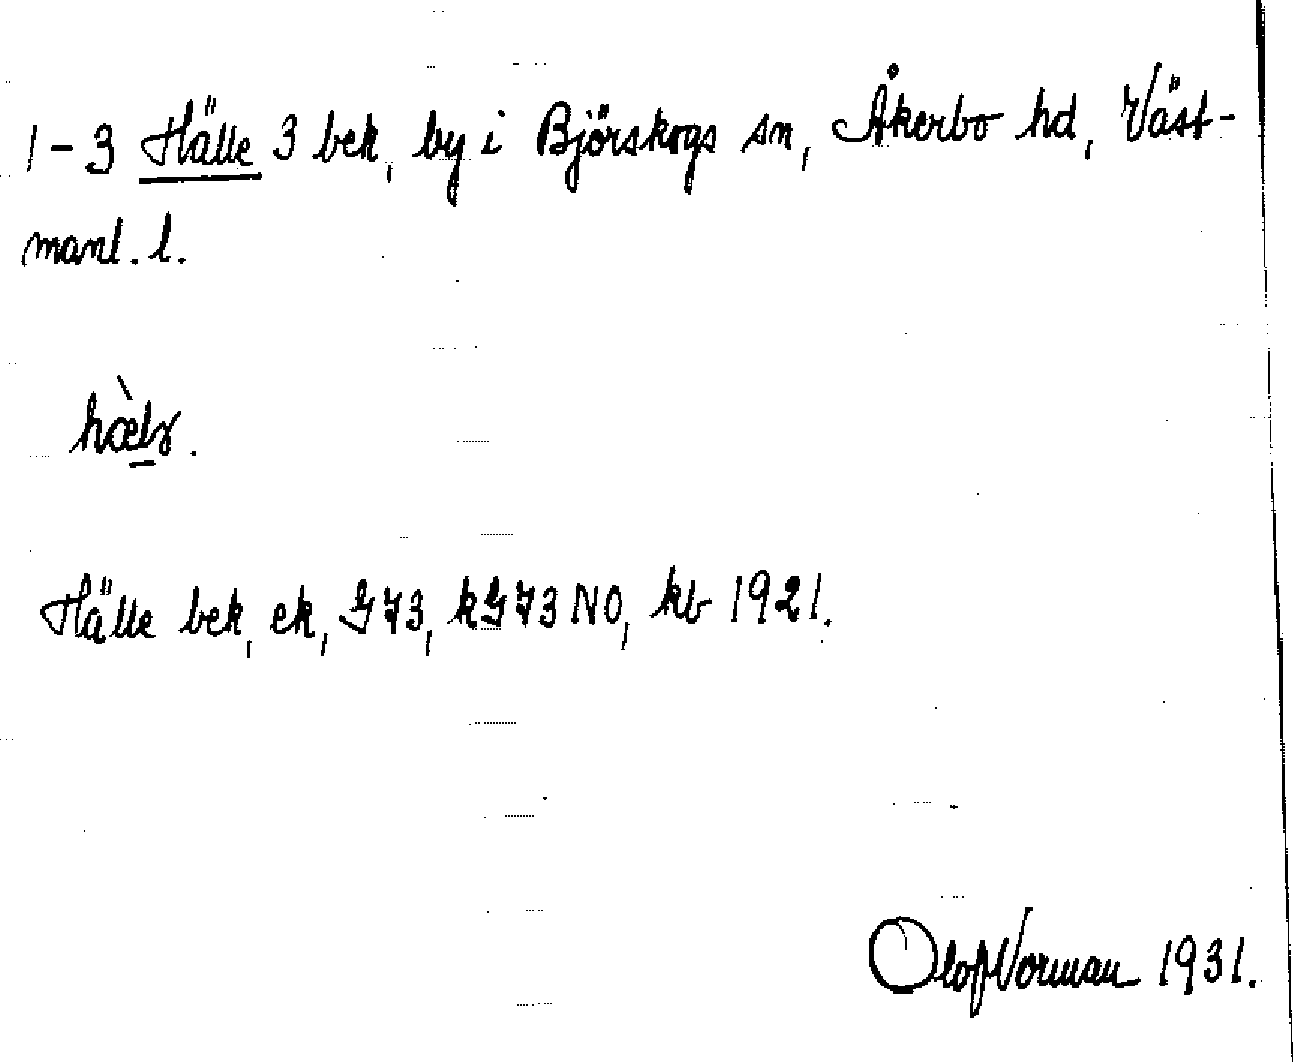 1-3 Hälle 3 bek, by i Björskogs sn, Åkerbo hd, Väst-
manl. l.
Hälle bek, ek, G73, kG73 NO, kb 1921.
Olof Vorman 1931.